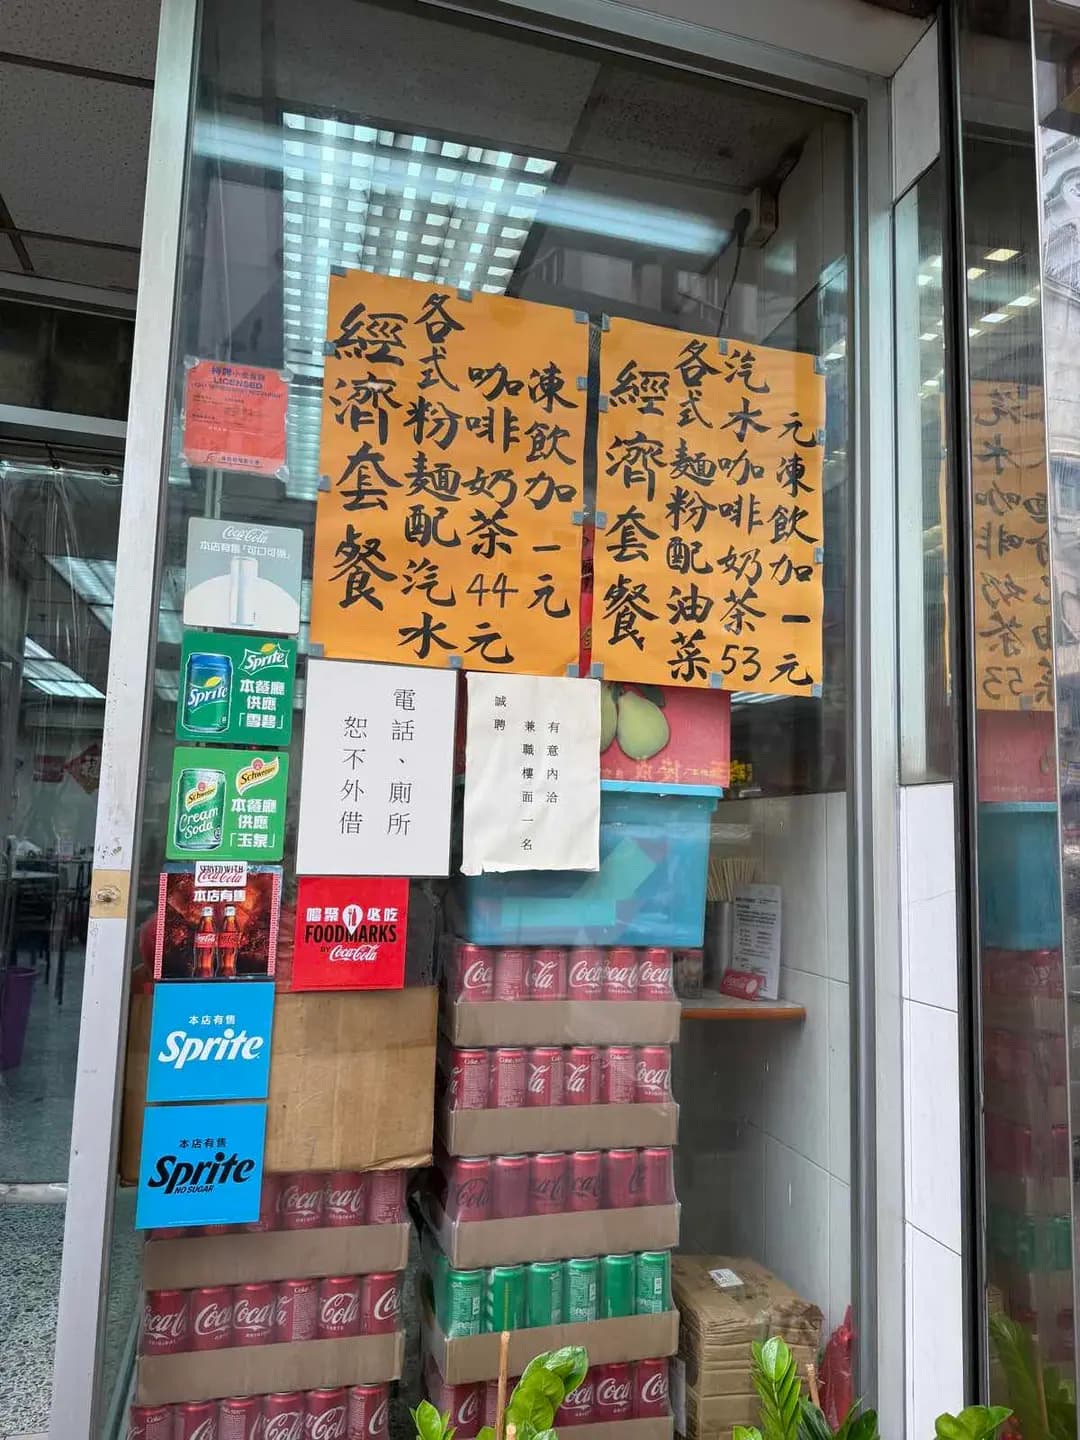 經濟套餐
各式粉麵配汽水
咖啡奶茶44元
凍飲加一元
經濟套餐
各式麵粉配油菜
汽水咖啡奶茶53
元凍飲加一元
LICENSED
Coca-Cola
本店有售「可口可樂」
Sprite
Sprite
本餐廳
供應
「雪碧」
Schweppes
Schweppes
Cream
Soda
本餐廳
供應
「玉泉」
SERVED WITH
Coca-Cola
本店有售
電話、廁所
恕不外借
誠聘
兼職樓面一名
有意內洽
嚐聚必吃
FOODMARKS
BY Coca-Cola
本店有售
Sprite
本店有售
Sprite
NO SUGAR